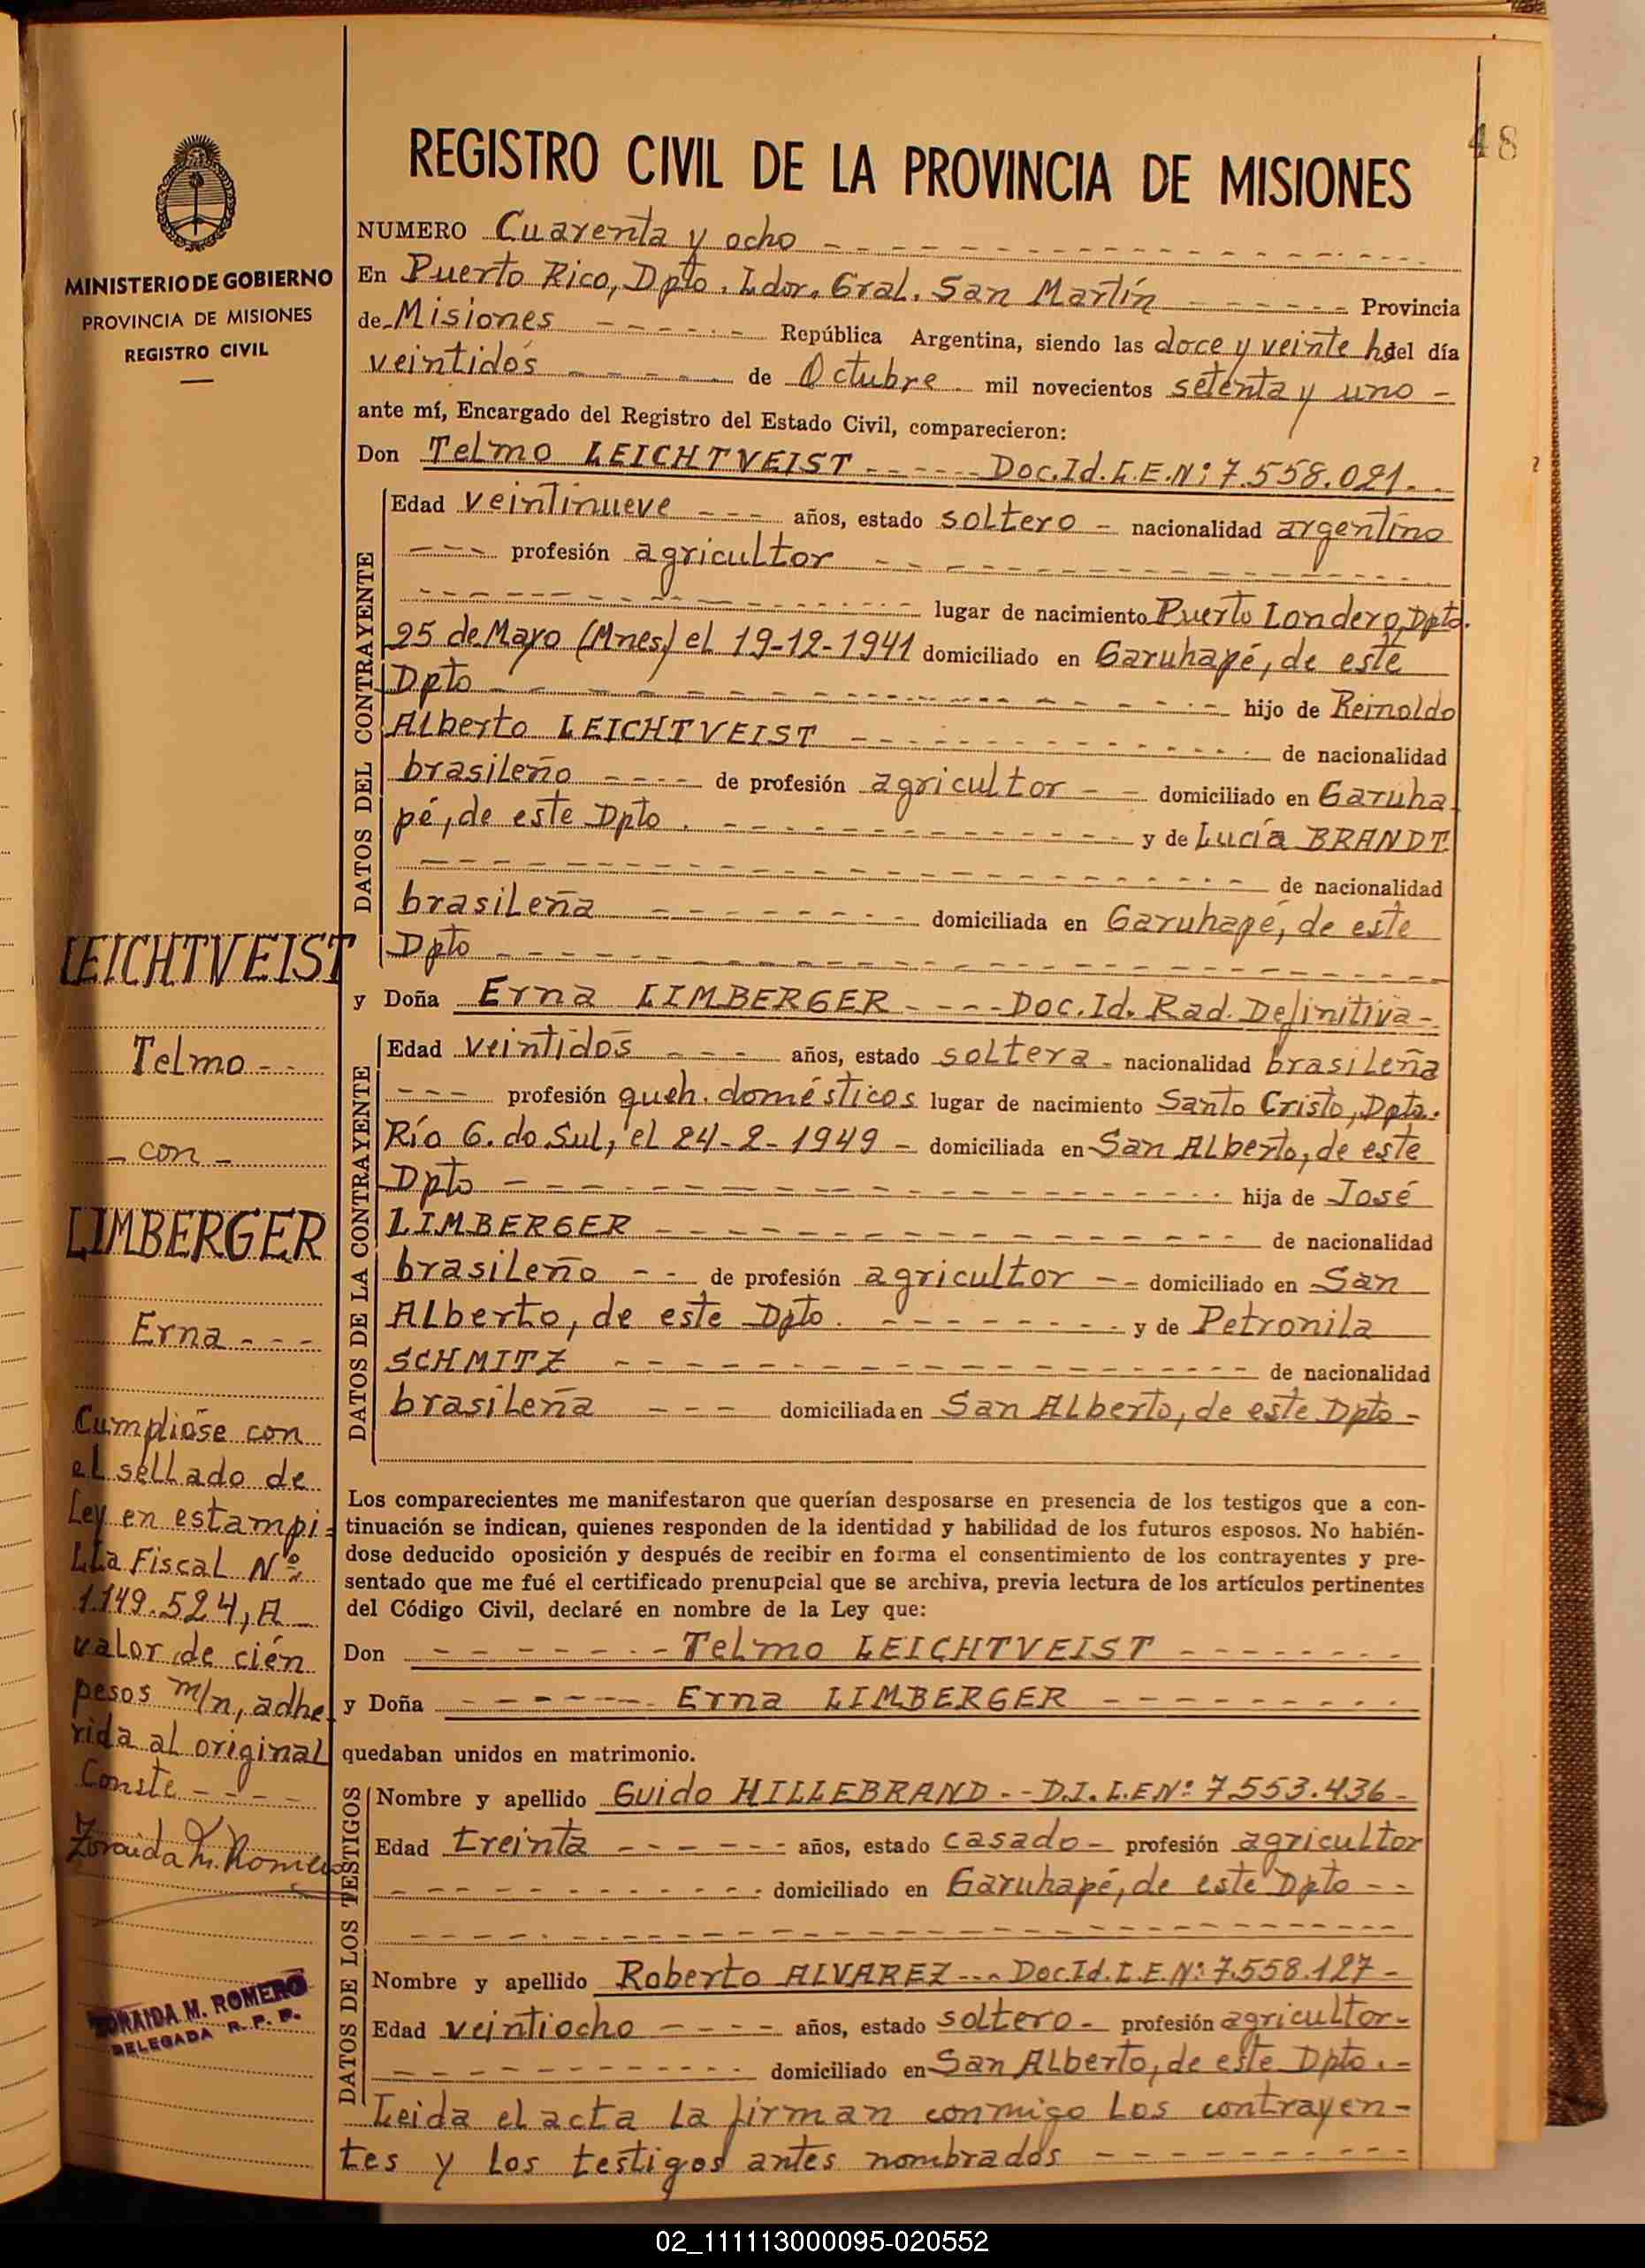 48
REGISTRO CIVIL DE LA PROVINCIA DE MISIONES
MINISTERIO DE GOBIERNO
PROVINCIA DE MISIONES
REGISTRO CIVIL
NUMERO Cuarenta y ocho
En Puerto Rico, Dpto. Ldor. Gral. San Martín Provincia
de Misiones República Argentina, siendo las doce y veinte h del día
veintidós de Octubre mil novecientos setenta y uno
ante mí, Encargado del Registro del Estado Civil, comparecieron:
Don Telmo LEICHTVEIST Doc.Id.L.E.N: 7.558.021.
DATOS DEL CONTRAYENTE
Edad veintinueve años, estado soltero nacionalidad argentino
profesión agricultor
lugar de nacimiento Puerto Londero, Dpto.
25 de Mayo (Mnes.) el 19-12-1941 domiciliado en Garuhapé, de este
Dpto hijo de Reinoldo
Alberto LEICHTVEIST de nacionalidad
brasileño de profesión agricultor domiciliado en Garuha
pé, de este Dpto. y de Lucía BRANDT
de nacionalidad
brasileña domiciliada en Garuhapé, de este
Dpto
y Doña Erna LIMBERGER Doc.Id. Rad. Definitiva
DATOS DE LA CONTRAYENTE
Edad veintidos años, estado soltera nacionalidad brasileña
profesión queh. domésticos lugar de nacimiento Santo Cristo, Dpto.
Río G. do Sul, el 24-2-1949 domiciliada en San Alberto, de este
Dpto hija de José
LIMBERGER de nacionalidad
brasileño de profesión agricultor domiciliado en San
Alberto, de este Dpto. y de Petronila
SCHMITZ de nacionalidad
brasileña domiciliada en San Alberto, de este Dpto
Los comparecientes me manifestaron que querían desposarse en presencia de los testigos que a con-
tinuación se indican, quienes responden de la identidad y habilidad de los futuros esposos. No habién-
dose deducido oposición y después de recibir en forma el consentimiento de los contrayentes y pre-
sentado que me fué el certificado prenupcial que se archiva, previa lectura de los artículos pertinentes
del Código Civil, declaré en nombre de la Ley que:
Don Telmo LEICHTVEIST
y Doña Erna LIMBERGER
quedaban unidos en matrimonio.
DATOS DE LOS TESTIGOS
Nombre y apellido Guido HILLEBRAND D.I.L.E Nº: 7.553.436
Edad treinta años, estado casado profesión agricultor
domiciliado en Garuhapé, de este Dpto
Nombre y apellido Roberto ALVAREZ Doc.Id.L.E.Nº: 7.558.127
Edad veintiocho años, estado soltero profesión agricultor
domiciliado en San Alberto, de este Dpto.
Leida el acta la firman conmigo los contrayen-
tes y los testigos antes nombrados
LEICHTVEIST
Telmo
con
LIMBERGER
Erna
Cumplióse con
el sellado de
Ley en estampi=
lla Fiscal Nº
1.149.524, A
valor de cién
pesos m/n, adhe
rida al original
Conste
Zoraida M. Romero
ZORAIDA M. ROMERO
DELEGADA R. P. P.
02_111113000095-020552